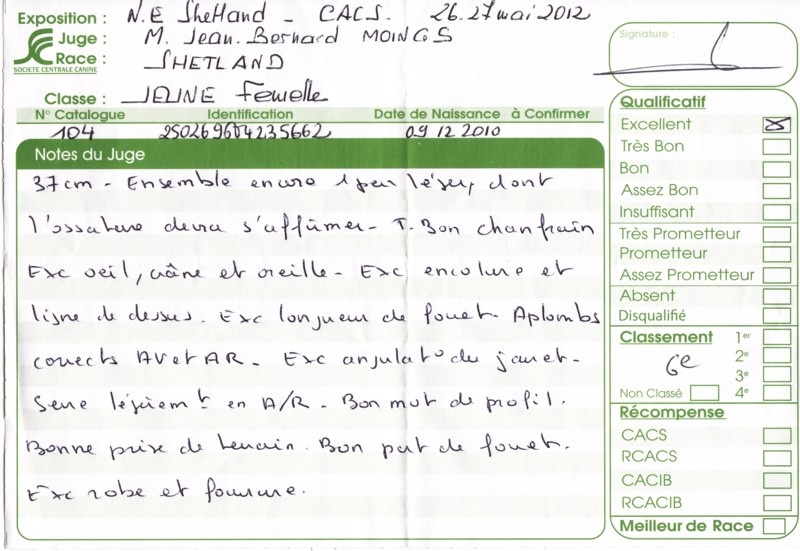 Exposition : N.E Shetland - CACS. 26.27 mai 2012
Juge : M. Jean.Bernard MOINGS
Race : SHETLAND
SOCIETE CENTRALE CANINE
Classe : JEUNE Femelle
N° Catalogue Identification Date de Naissance à Confirmer
104 250269604235662 09 12 2010
Notes du Juge
37cm - Ensemble encore 1 peu léger, dont
l'ossature devra s'affirmer - T. Bon chanfrain
Exc oeil, crâne et oreille - Exc encolure et
ligne de dessus. Exc longueur de fouet. Aplombs
corrects AV et AR - Exc angulat° du jarret -
Serre légèremt en A/R - Bon mvt de profil.
Bonne prise de terrain. Bon port de fouet.
Exc robe et fourrure.
Signature :
Qualificatif
Excellent
Très Bon
Bon
Assez Bon
Insuffisant
Très Prometteur
Prometteur
Assez Prometteur
Absent
Disqualifié
Classement 1er
6e 2e
3e
Non Classé 4e
Récompense
CACS
RCACS
CACIB
RCACIB
Meilleur de Race